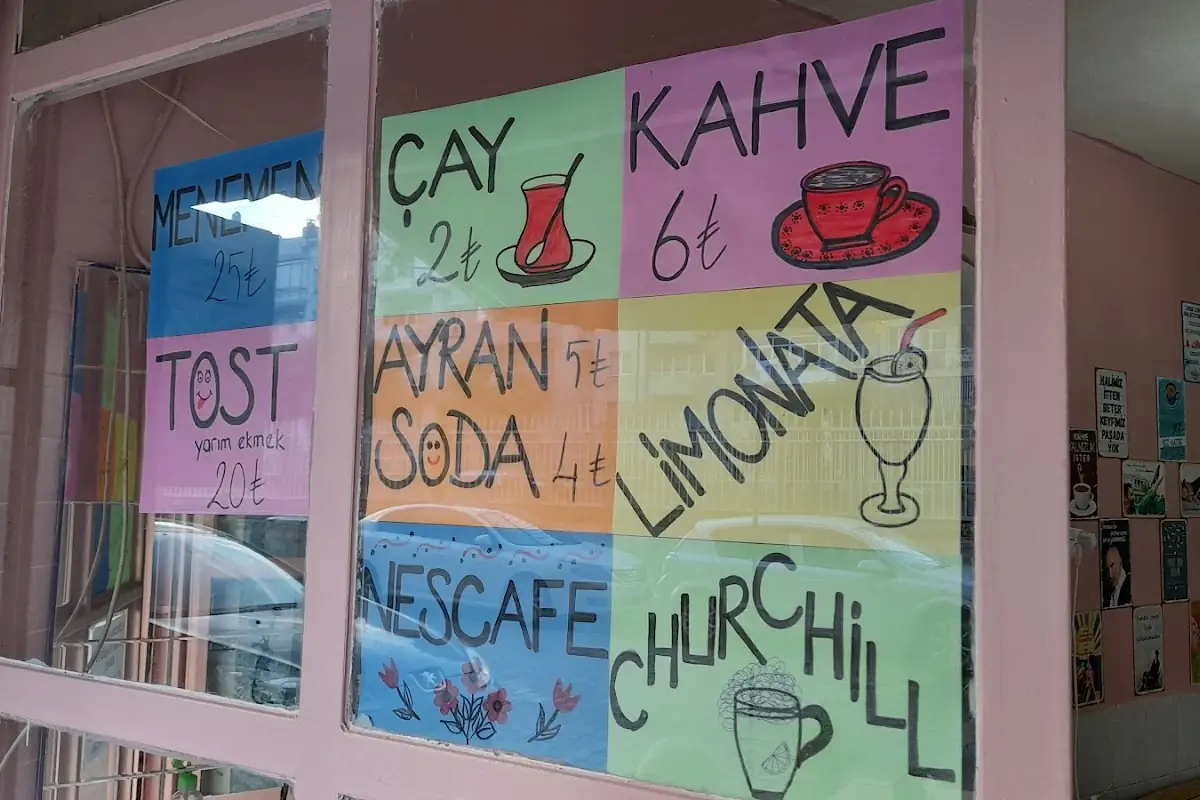 MENEMEN
25₺
TOST
yarım ekmek
20₺
ÇAY
2₺
KAHVE
6₺
AYRAN 5₺
SODA 4₺
LİMONATA
NESCAFE
CHURCHİLL
HALİMİZ
İTTEN
BETER
KEYFİMİZ
PAŞADA
YOK
KAHVE